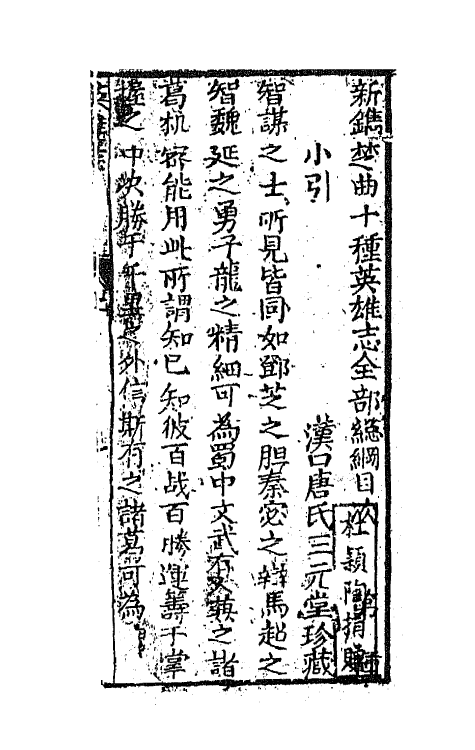 新鐫楚曲十種英雄志全部總綱目次
杜穎陶捐贈
小引
漢口唐氏三元堂珍藏
智謀之士所見皆同如鄧芝之胆秦宓之辯馬超之
智魏延之勇子龍之精細可為蜀中文武之諸
葛孔能用此所謂知已知彼百战百勝運籌于掌
握之中决勝于千里之外信斯有之諸葛可為